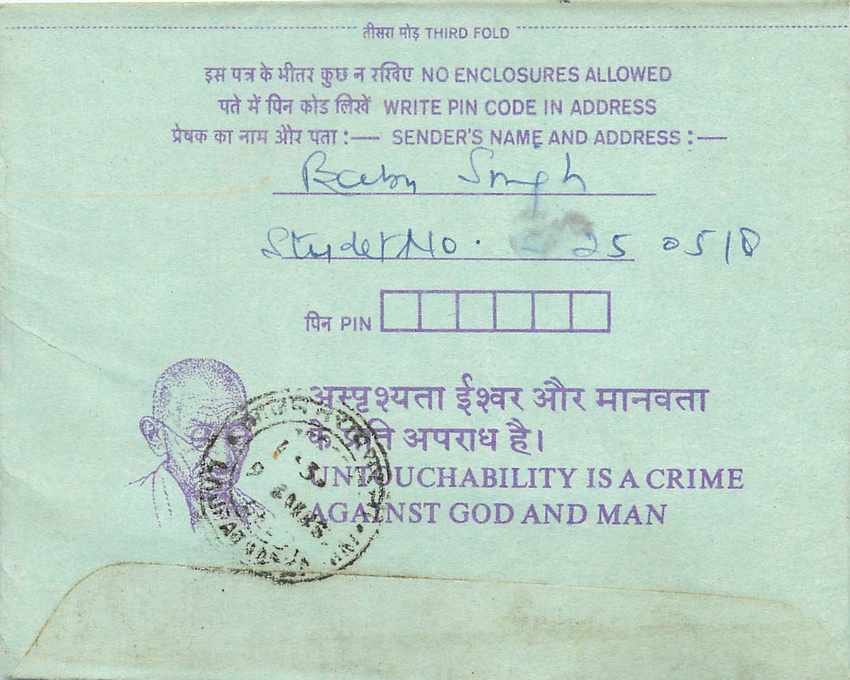 तीसरा मोड़ THIRD FOLD
इस पत्र के भीतर कुछ न रखिए NO ENCLOSURES ALLOWED
पते में पिन कोड लिखें WRITE PIN CODE IN ADDRESS
प्रेषक का नाम और पता :— SENDER'S NAME AND ADDRESS :—
Babu Singh
Studet No. 25 05/8
पिन PIN
अस्पृश्यता ईश्वर और मानवता
के प्रति अपराध है।
UNTOUCHABILITY IS A CRIME
AGAINST GOD AND MAN